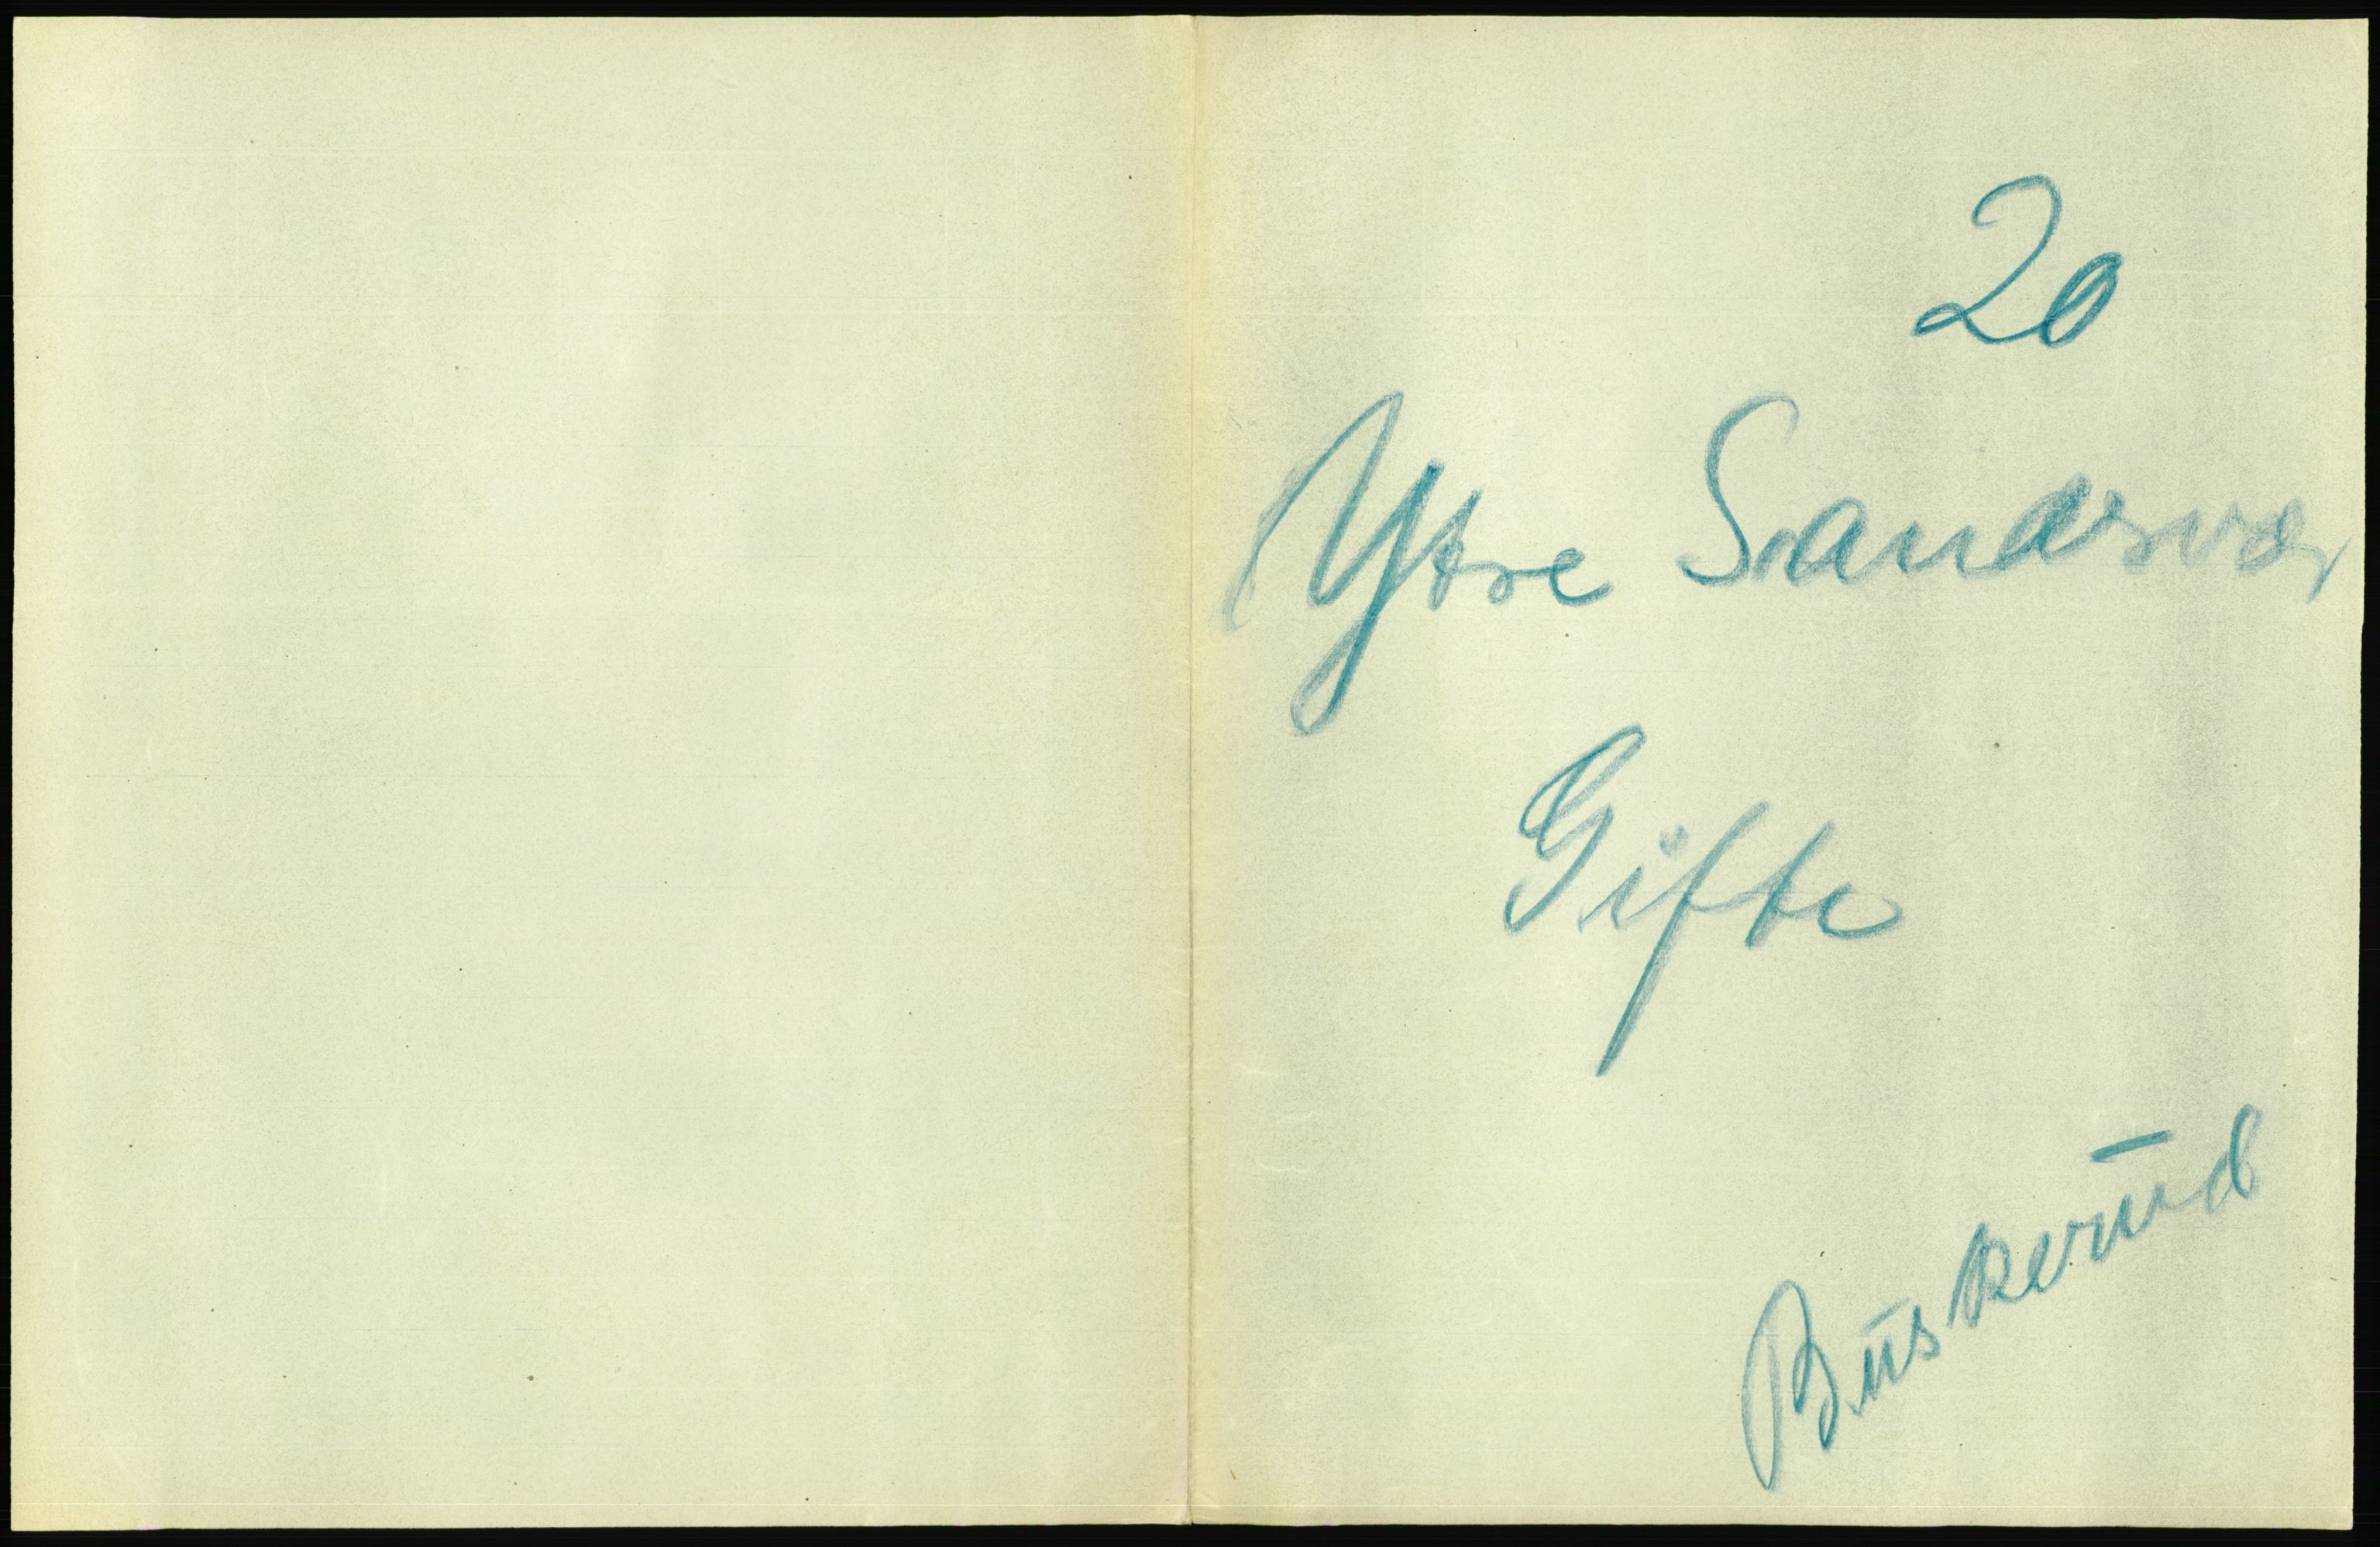 20
Ytre Sandsvær
Gifte
Buskerud